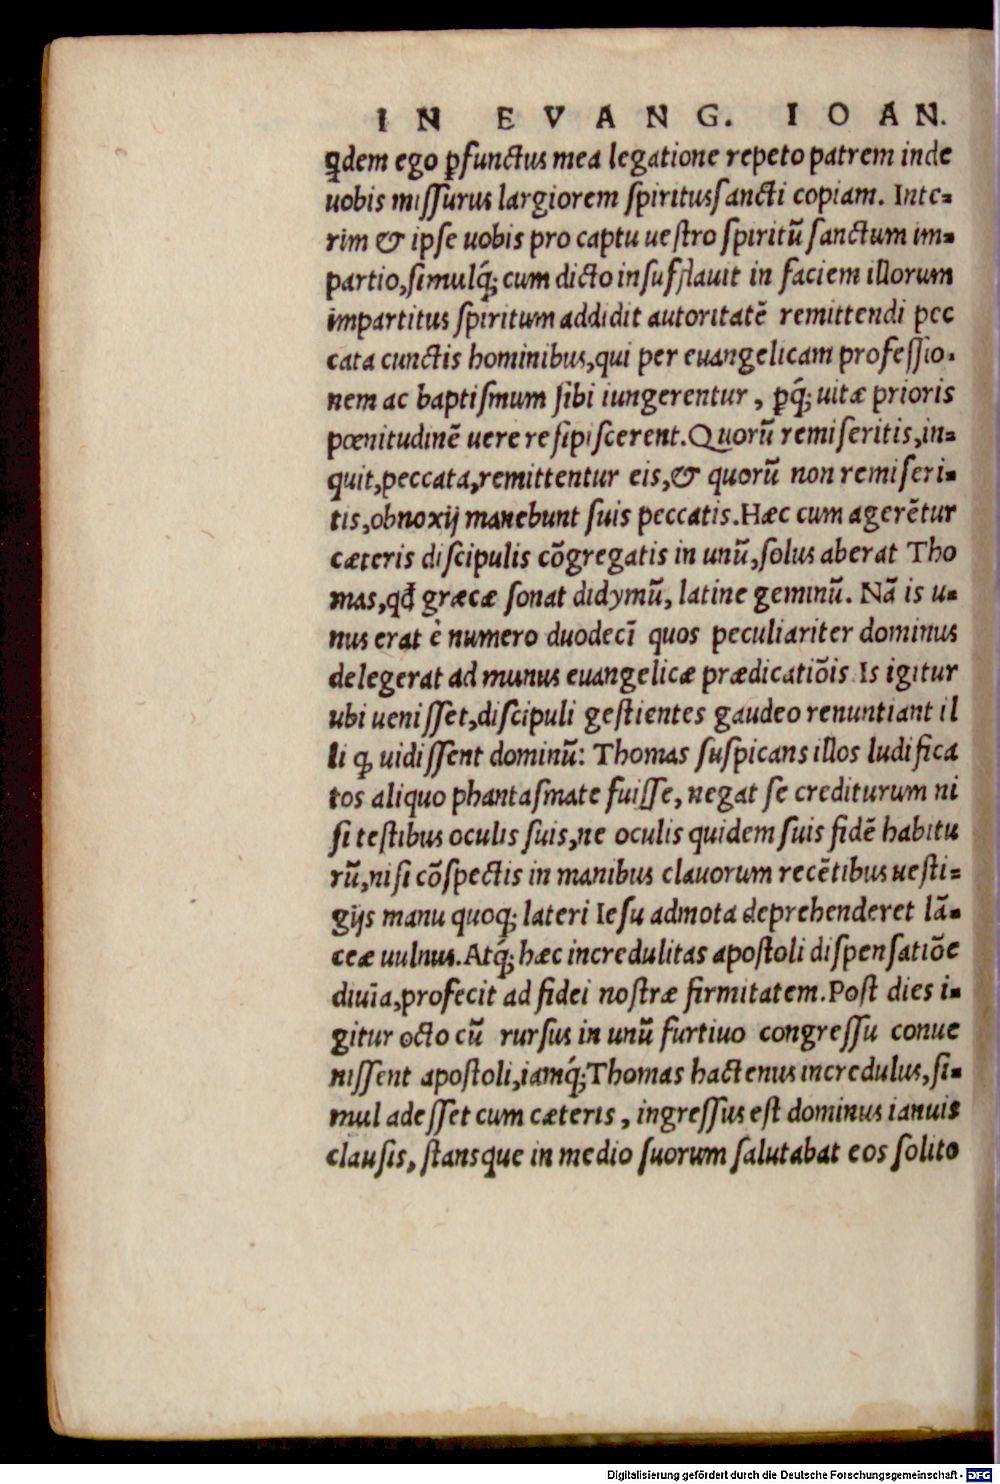 IN EVANG. IOAN.
q̃dem ego ꝑfunctus mea legatione repeto patrem inde
uobis missurus largiorem spiritussancti copiam. Inte-
rim & ipse uobis pro captu uestro spiritū sanctum im-
partio, simulq́; cum dicto insufflauit in faciem illorum
impartitus spiritum addidit autoritatē remittendi pec
cata cunctis hominibus, qui per euangelicam professio-
nem ac baptismum sibi iungerentur, ꝑq́; uitæ prioris
pœnitudinē uere resipiscerent. Quorū remiseritis, in-
quit, peccata, remittentur eis, & quorū non remiseri-
tis, obnoxij manebunt suis peccatis. Hæc cum agerētur
cæteris discipulis cōgregatis in unū, solus aberat Tho
mas, qđ græcæ sonat didymū, latine geminū. Nā is u-
nus erat è numero duodecī quos peculiariter dominus
delegerat ad munus euangelicæ prædicatiōis Is igitur
ubi uenisset, discipuli gestientes gaudeo renuntiant il
li ꝙ uidissent dominū: Thomas suspicans illos ludifica
tos aliquo phantasmate fuisse, negat se crediturum ni
si testibus oculis suis, ne oculis quidem suis fidē habitu
rū, nisi cōspectis in manibus clauorum recētibus uesti-
gijs manu quoq; lateri Iesu admota deprehenderet lā-
ceæ uulnus. Atq́; hæc incredulitas apostoli dispensatiōe
diuīa, profecit ad fidei nostræ firmitatem. Post dies i-
gitur octo cū rursus in unū furtiuo congressu conue
nissent apostoli, iamq́; Thomas hactenus incredulus, si-
mul adesset cum cæteris, ingressus est dominus ianuis
clausis, stansque in medio suorum salutabat eos solito
Digitalisierung gefördert durch die Deutsche Forschungsgemeinschaft - DFG